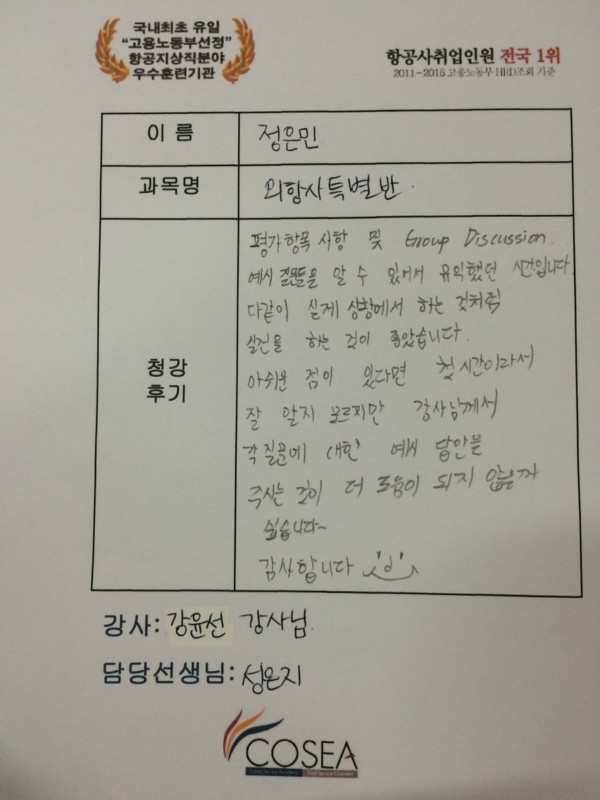 국내최초 유일
"고용노동부선정"
항공지상직분야
우수훈련기관
항공사취업인원 전국 1위
2011~2015 고용노동부 HRD조회 기준
이 름
정은민
과목명
외항사특별반.
청강
후기
평가항목 사항 및 Group Discussion.
예시 질문들을 알 수 있어서 유익했던 시간입니다.
다같이 실제 상황에서 하는 것처럼
실전을 하는 것이 좋았습니다.
아쉬운 점이 있다면 첫 시간이라서
잘 알지 모르지만 강사님께서
각 질문에 대한 예시 답안을
주시는 것이 더 도움이 되지 않은까
싶습니다~
감사합니다
강사: 강윤선 강사님.
담당선생님: 성은지
COSEA